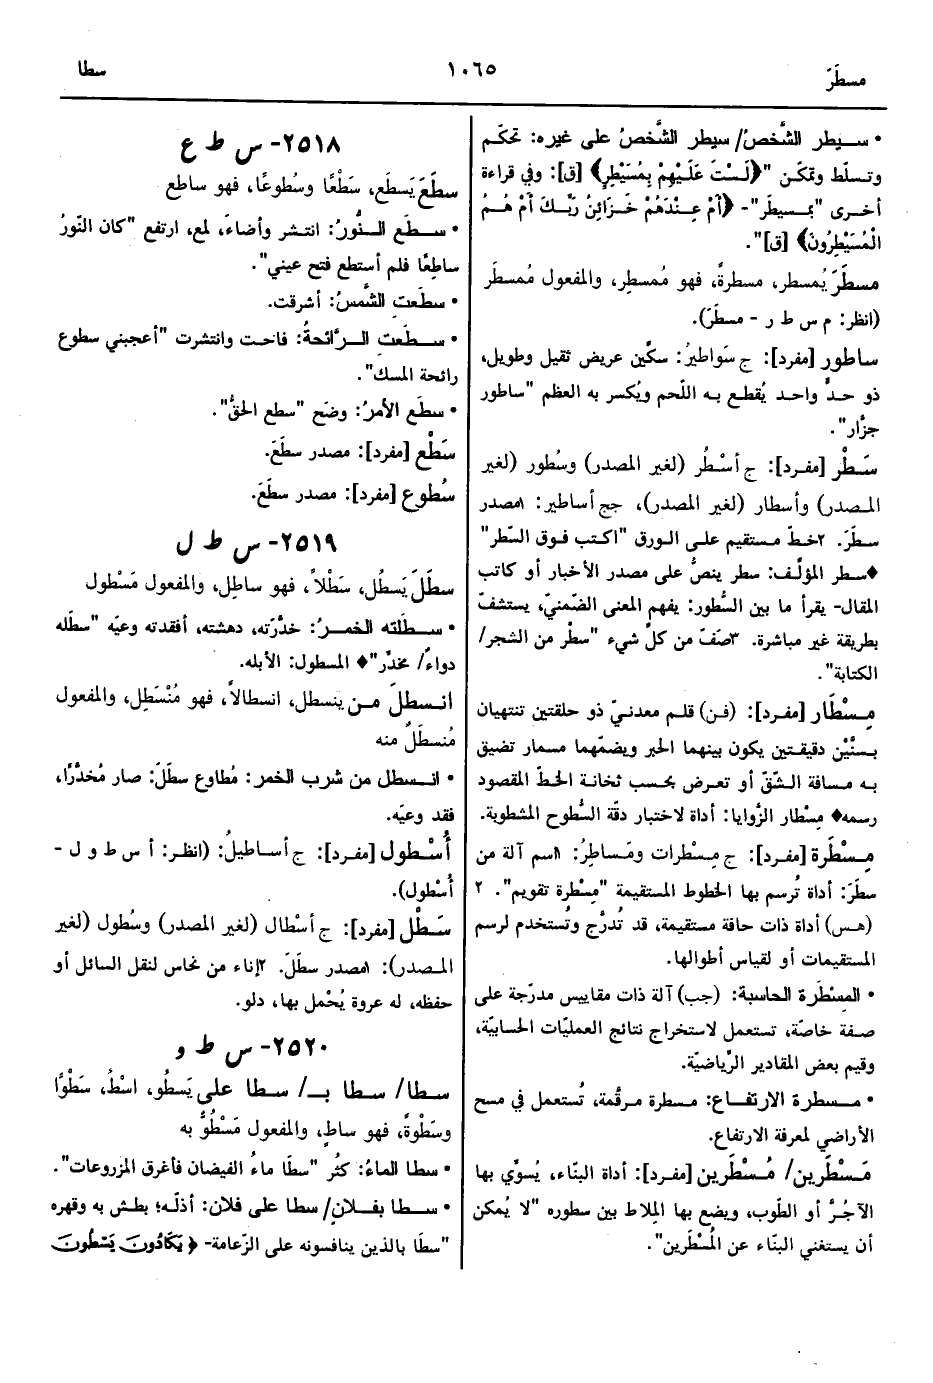 مسطَرَ
١٠٦٥
سطا
• سـيطر الشَّخصُ/ سيطر الشَّخصُ على غيره: تحكّم
وتسلّط وتمكّن "﴿لَسْتَ عَلَيْهِمْ بِمُسَيْطِرٍ﴾ [ق]: وفي قراءة
أخرى "بمسيطَر"- ﴿أَمْ عِنْدَهُمْ خَزَائِنُ رَبِّكَ أَمْ هُمُ
الْمُسَيْطِرُونَ﴾ [ق]".
مسطَرَ يُمسطر، مسطرةً، فهو مُمسطِر، والمفعول مُمسطَر
(انظر: م س ط ر - مسطَرَ).
ساطور [مفرد]: ج سَواطيرُ: سكّين عريض ثقيل وطويل،
ذو حدٍّ واحد يُقطع به اللّحم ويُكسر به العظم "ساطور
جزَّار".
سَطْر [مفرد]: ج أسْطُر (لغير المصدر) وسُطور (لغير
المصدر) وأسطار (لغير المصدر)، جج أساطير: ١مصدر
سطَرَ. ٢خطّ مستقيم على الورق "اكتب فوق السّطر"
♦سطر المؤلّف: سطر ينصُّ على مصدر الأخبار أو كاتب
المقال- يقرأ ما بين السُّطور: يفهم المعنى الضّمنيّ، يستشفّ
بطريقة غير مباشرة. ٣صَفّ من كلِّ شيء "سطْر من الشجر/
الكتابة".
مِسْطار [مفرد]: (فن) قلم معدنيّ ذو حلقتين تنتهيان
بسنَّيْن دقيقتين يكون بينهما الحبر ويضمّهما مسمار تضيق
به مسافة الشّقّ أو تعرض بحسب ثخانة الخطّ المقصود
رسمه♦ مِسْطار الزّوايا: أداة لاختبار دقّة السُّطوح المشطوبة.
مِسْطرة [مفرد]: ج مِسْطرات ومَساطِرُ: ١اسم آلة من
سطَرَ: أداة تُرسم بها الخطوط المستقيمة "مِسْطرة تقويم". ٢
(هس) أداة ذات حافة مستقيمة، قد تُدرَّج وتُستخدم لرسم
المستقيمات أو لقياس أطوالها.
• المسْطَرة الحاسبة: (جب) آلة ذات مقاييس مدرّجة على
صفة خاصّة، تستعمل لاستخراج نتائج العمليّات الحسابيّة،
وقيم بعض المقادير الرّياضيّة.
• مسطرة الارتفاع: مسطرة مرقّمة، تُستعمل في مسح
الأراضي لمعرفة الارتفاع.
مَسْطَرين/ مُسْطَرين [مفرد]: أداة البنّاء، يُسوِّي بها
الآجُرَّ أو الطّوب، ويضع بها المِلاط بين سطوره "لا يُمكن
أن يستغني البنّاء عن المُسْطَرين".
٢٥١٨- س ط ع
سطَعَ يَسطَع، سَطْعًا وسُطوعًا، فهو ساطع
• سطَع النُّورُ: انتشر وأضاءَ، لمع، ارتفع "كان النّورُ
ساطِعًا فلم أستطع فتح عيني".
• سطَعت الشّمسُ: أشرقت.
• سطَعت الرَّائحةُ: فاحت وانتشرت "أعجبني سطوع
رائحة المسك".
• سطَع الأمرُ: وضَح "سطع الحقُّ".
سَطْع [مفرد]: مصدر سطَعَ.
سُطوع [مفرد]: مصدر سطَعَ.
٢٥١٩- س ط ل
سطَلَ يَسطُل، سَطْلاً، فهو ساطِل، والمفعول مَسْطول
• سطَلته الخمرُ: خدَّرته، دهشته، أفقدته وعيَه "سطَله
دواءٌ/ مخدِّر"♦ المسطول: الأبله.
انسطلَ من ينسطل، انسطالاً، فهو مُنْسَطِل، والمفعول
مُنسطَلٌ منه
• انسطل من شرب الخمر: مُطاوع سطَلَ: صار مُخدَّرًا،
فقد وعيَه.
أُسْطول [مفرد]: ج أساطيلُ: (انظر: أ س ط و ل -
أُسْطول).
سَطْل [مفرد]: ج أسْطال (لغير المصدر) وسُطول (لغير
المصدر): ١مصدر سطَلَ. ٢إناء من نحاس لنقل السائل أو
حفظه، له عروة يُحْمل بها، دلو.
٢٥٢٠- س ط و
سطا/ سطا بـ/ سطا على يَسطُو، اسْطُ، سَطْوًا
وسَطْوةً، فهو ساطٍ، والمفعول مَسْطُوٌّ به
• سطا الماءُ: كثُر "سطَا ماءُ الفيضان فأغرق المزروعات".
• سطا بفلانٍ/ سطا على فلان: أذلّه؛ بطش به وقهره
"سطَا بالذين ينافسونه على الزّعامة- ﴿يَكَادُونَ يَسْطُونَ